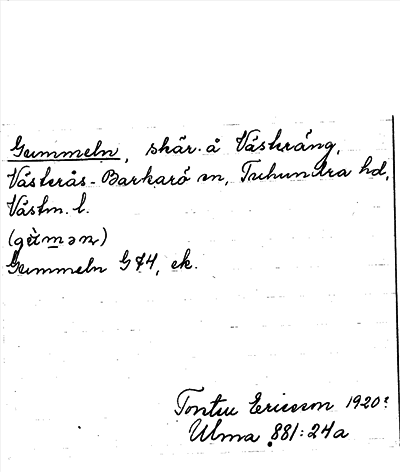 Gummeln, skär å Väsleräng,
Västerås-Barkarö sn, Tuhundra hd,
Västm. l.
Gummeln G 74, ek.
Tontsu Ericsson 1920?
Ulma 881:24a